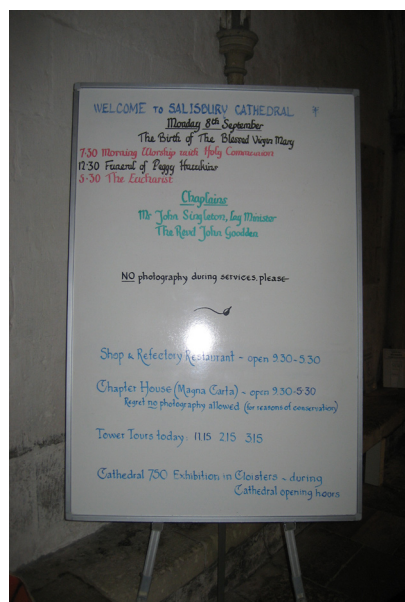 WELCOME TO SALISBURY CATHEDRAL
Monday 8th September
The Birth of The Blessed Virgin Mary
7·30 Morning Worship with Holy Communion
12·30 Funeral of Peggy
5·30 The Eucharist
Chaplains
Mr John Singleton, Lay Minister
The Revd John Goodden
NO photography during services, please
Shop & Refectory Restaurant - open 9.30-5.30
Chapter House (Magna Carta) - open 9.30-5.30
Regret no photography allowed (for reasons of conservation)
Tower Tours today: 11.15 2.15 3.15
Cathedral 750 Exhibition in Cloisters - during
Cathedral opening hours